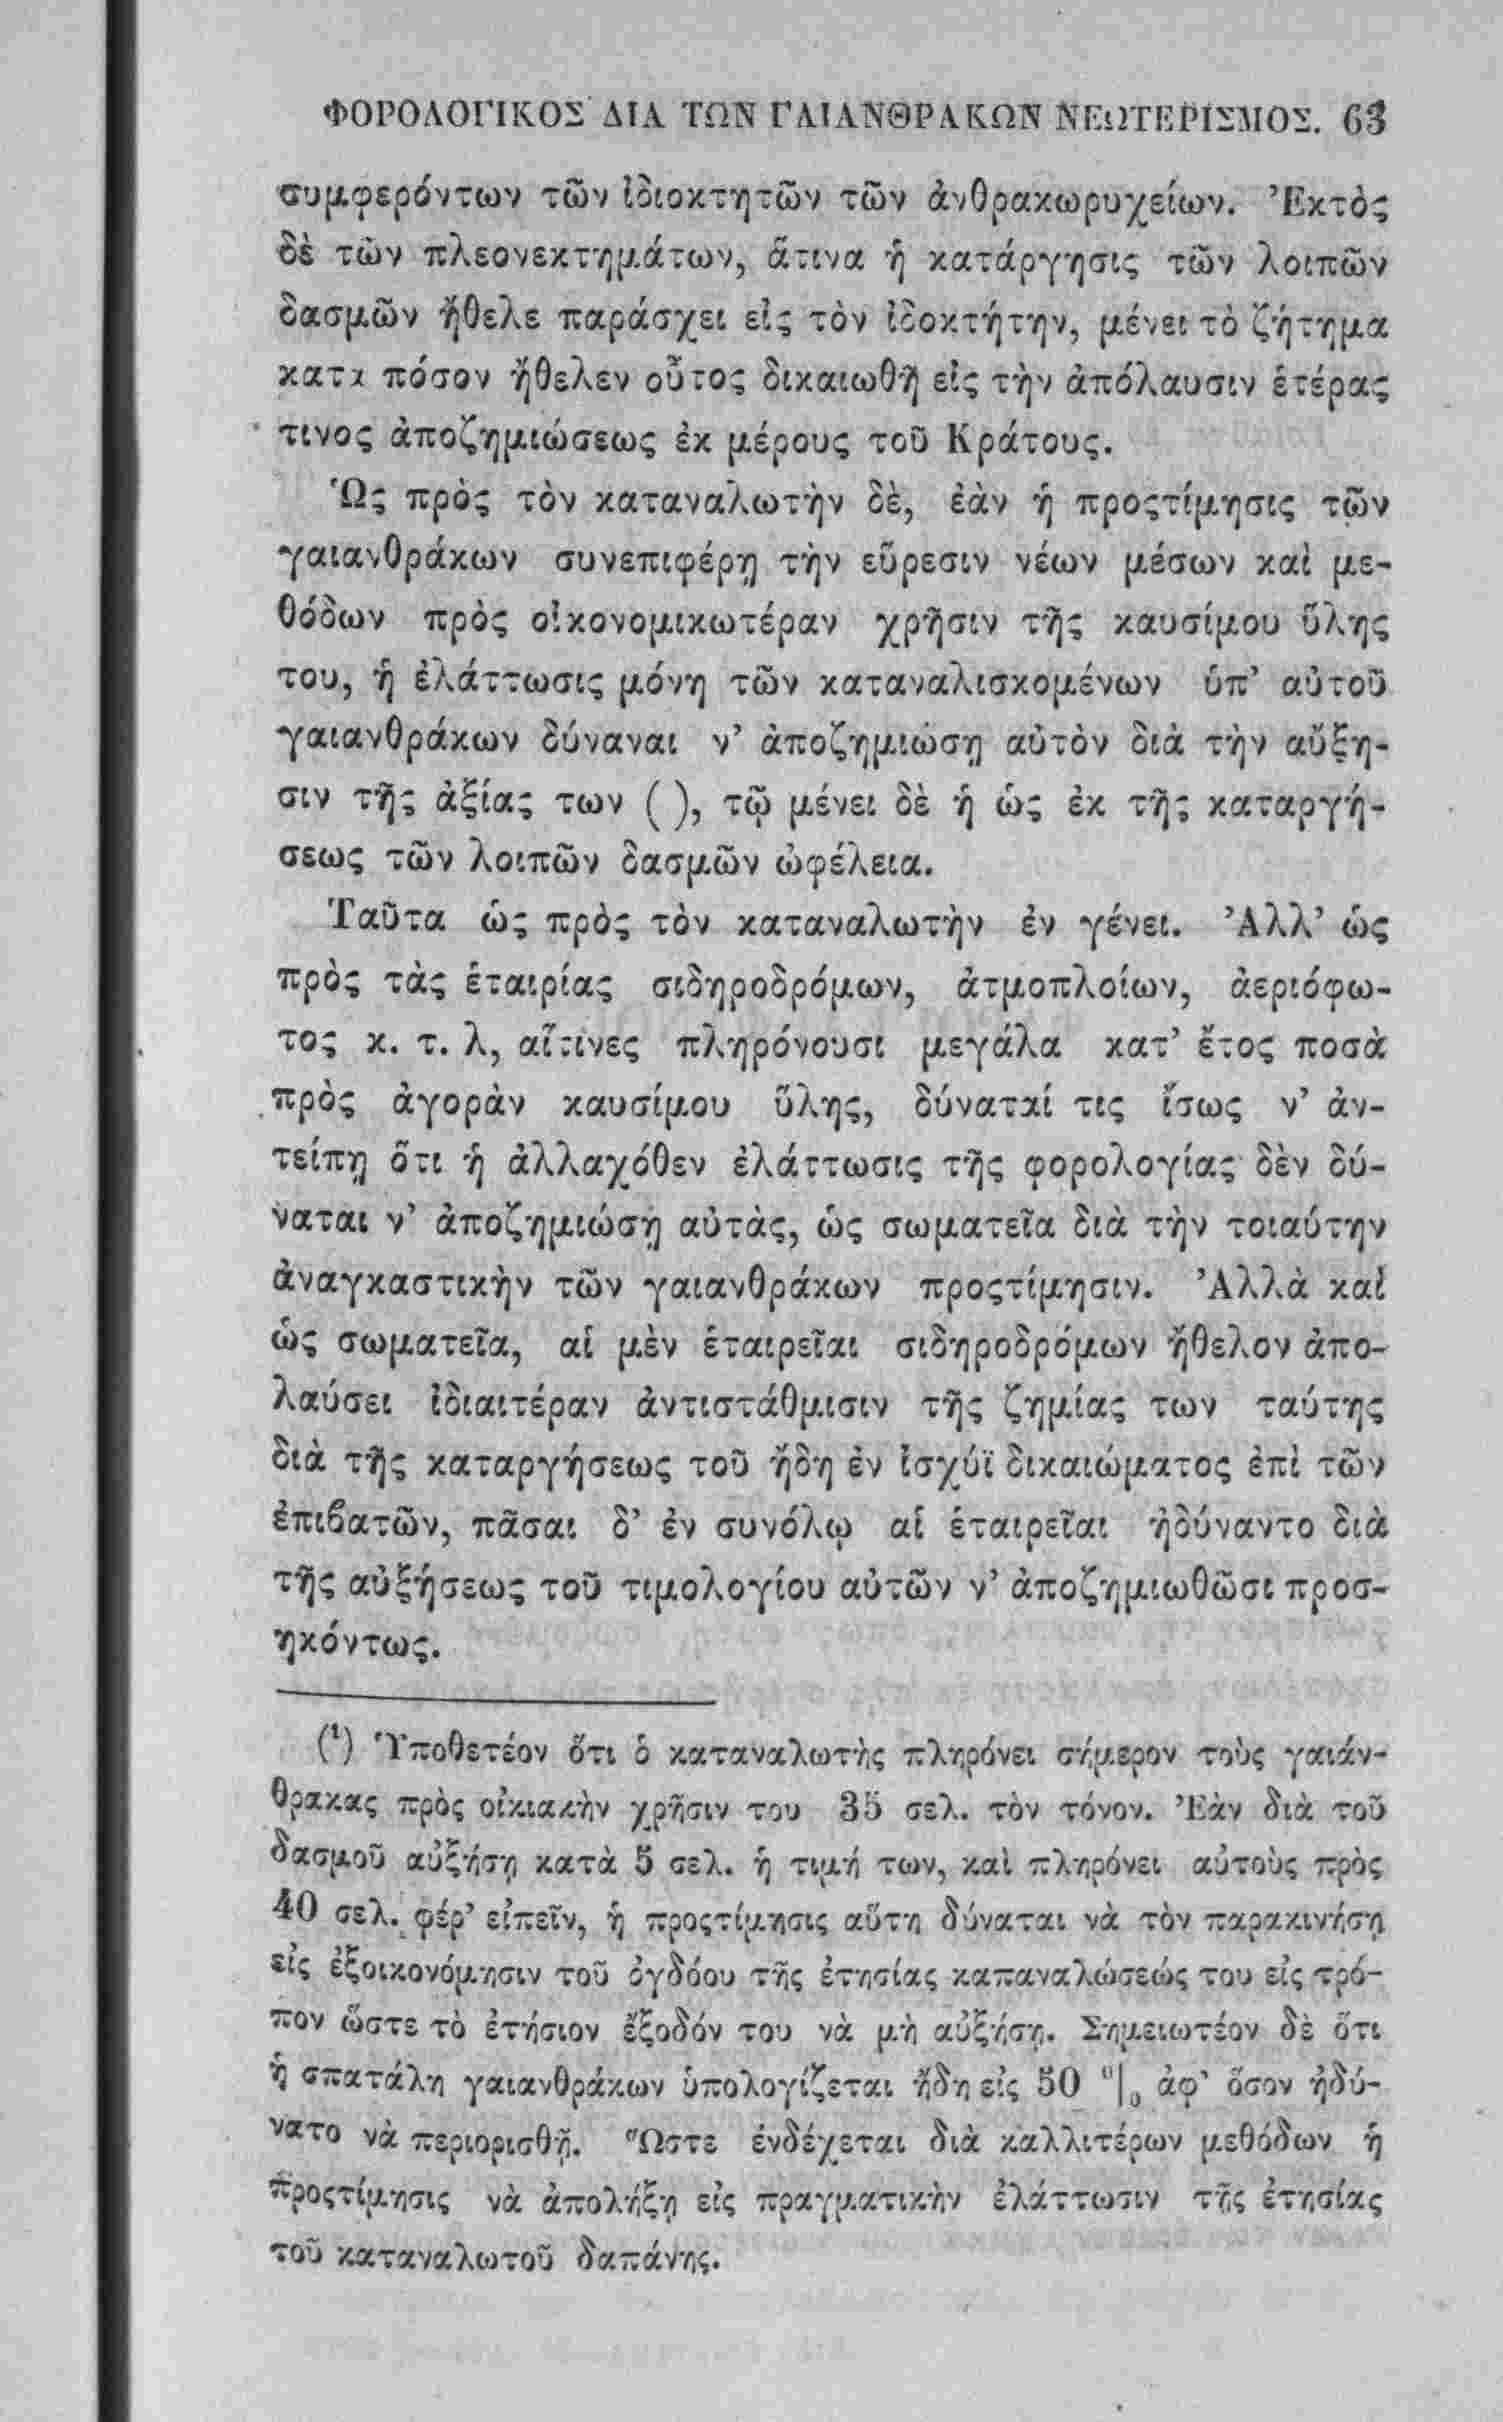 ΦΟΡΟΛΟΓΙΚΟΣ ΔΙΑ ΤΩΝ ΓΑΙΑΝΘΡΑΚΩΝ ΝΕΩΤΕΡΙΣΜΟΣ. 63
συμφερόντων τῶν ἰδιοκτητῶν τῶν ἀνθρακωρυχείων. Ἐκτὸς
δὲ τῶν πλεονεκτημάτων, ἅτινα ἡ κατάργησις τῶν λοιπῶν
δασμῶν ἤθελε παράσχει εἰς τὸν ἰδοκτήτην, μένει τὸ ζήτημα
κατα πόσον ἤθελεν οὗτος δικαιωθῆ εἰς τὴν ἀπόλαυσιν ἑτέρας
τινος ἀποζημιώσεως ἐκ μέρους τοῦ Κράτους.
Ὡς πρὸς τὸν καταναλωτὴν δὲ, ἐὰν ἡ προςτίμησις τῶν
γαιανθράκων συνεπιφέρῃ τὴν εὕρεσιν νέων μέσων καὶ με-
θόδων πρὸς οἰκονομικωτέραν χρῆσιν τῆς καυσίμου ὕλης
του, ἡ ἐλάττωσις μόνη τῶν καταναλισκομένων ὑπ' αὐτοῦ
γαιανθράκων δύναναι ν' ἀποζημιώσῃ αὐτὸν διὰ τὴν αὔξη-
σιν τῆς ἀξίας των ( ), τῷ μένει δὲ ἡ ὡς ἐκ τῆς καταργή-
σεως τῶν λοιπῶν δασμῶν ὠφέλεια.
Ταῦτα ὡς πρὸς τὸν καταναλωτὴν ἐν γένει. Ἀλλ' ὡς
πρὸς τὰς ἑταιρίας σιδηροδρόμων, ἀτμοπλοίων, ἀεριόφω-
τος κ. τ. λ, αἵτινες πληρόνουσι μεγάλα κατ' ἔτος ποσὰ
πρὸς ἀγορὰν καυσίμου ὕλης, δύναταί τις ἴσως ν' ἀν-
τείπῃ ὅτι ἡ ἀλλαχόθεν ἐλάττωσις τῆς φορολογίας δὲν δύ-
ναται ν' ἀποζημιώσῃ αὐτὰς, ὡς σωματεῖα διὰ τὴν τοιαύτην
ἀναγκαστικὴν τῶν γαιανθράκων προςτίμησιν. Ἀλλὰ καὶ
ὡς σωματεῖα, αἱ μὲν ἑταιρεῖαι σιδηροδρόμων ἤθελον ἀπο-
λαύσει ἰδιαιτέραν ἀντιστάθμισιν τῆς ζημίας των ταύτης
διὰ τῆς καταργήσεως τοῦ ἤδη ἐν ἰσχύϊ δικαιώματος ἐπὶ τῶν
ἐπιβατῶν, πᾶσαι δ' ἐν συνόλῳ αἱ ἑταιρεῖαι ἠδύναντο διὰ
τῆς αὐξήσεως τοῦ τιμολογίου αὐτῶν ν' ἀποζημιωθῶσι προσ-
ηκόντως.
(¹) Ὑποθετέον ὅτι ὁ καταναλωτὴς πληρόνει σήμερον τοὺς γαιάν-
θρακας πρὸς οἰκιακὴν χρῆσιν του 35 σελ. τὸν τόνον. Ἐὰν διὰ τοῦ
δασμοῦ αὐξήσῃ κατὰ 5 σελ. ἡ τιμή των, καὶ πληρόνει αὐτοὺς πρὸς
40 σελ. φέρ' εἰπεῖν, ἡ προςτίμησις αὕτη δύναται νὰ τὸν παρακινήσῃ
εἰς ἐξοικονόμησιν τοῦ ὀγδόου τῆς ἐτησίας καπαναλώσεώς του εἰς τρό-
πον ὥστε τὸ ἐτήσιον ἔξοδόν του νὰ μὴ αὐξήσῃ. Σημειωτέον δὲ ὅτι
ἡ σπατάλη γαιανθράκων ὑπολογίζεται ἤδη εἰς 50 ⁰|₀ ἀφ' ὅσον ἠδύ-
νατο νὰ περιορισθῇ. Ὥστε ἐνδέχεται διὰ καλλιτέρων μεθόδων ἡ
προςτίμησις νὰ ἀπολήξῃ εἰς πραγματικὴν ἐλάττωσιν τῆς ἐτησίας
τοῦ καταναλωτοῦ δαπάνης.